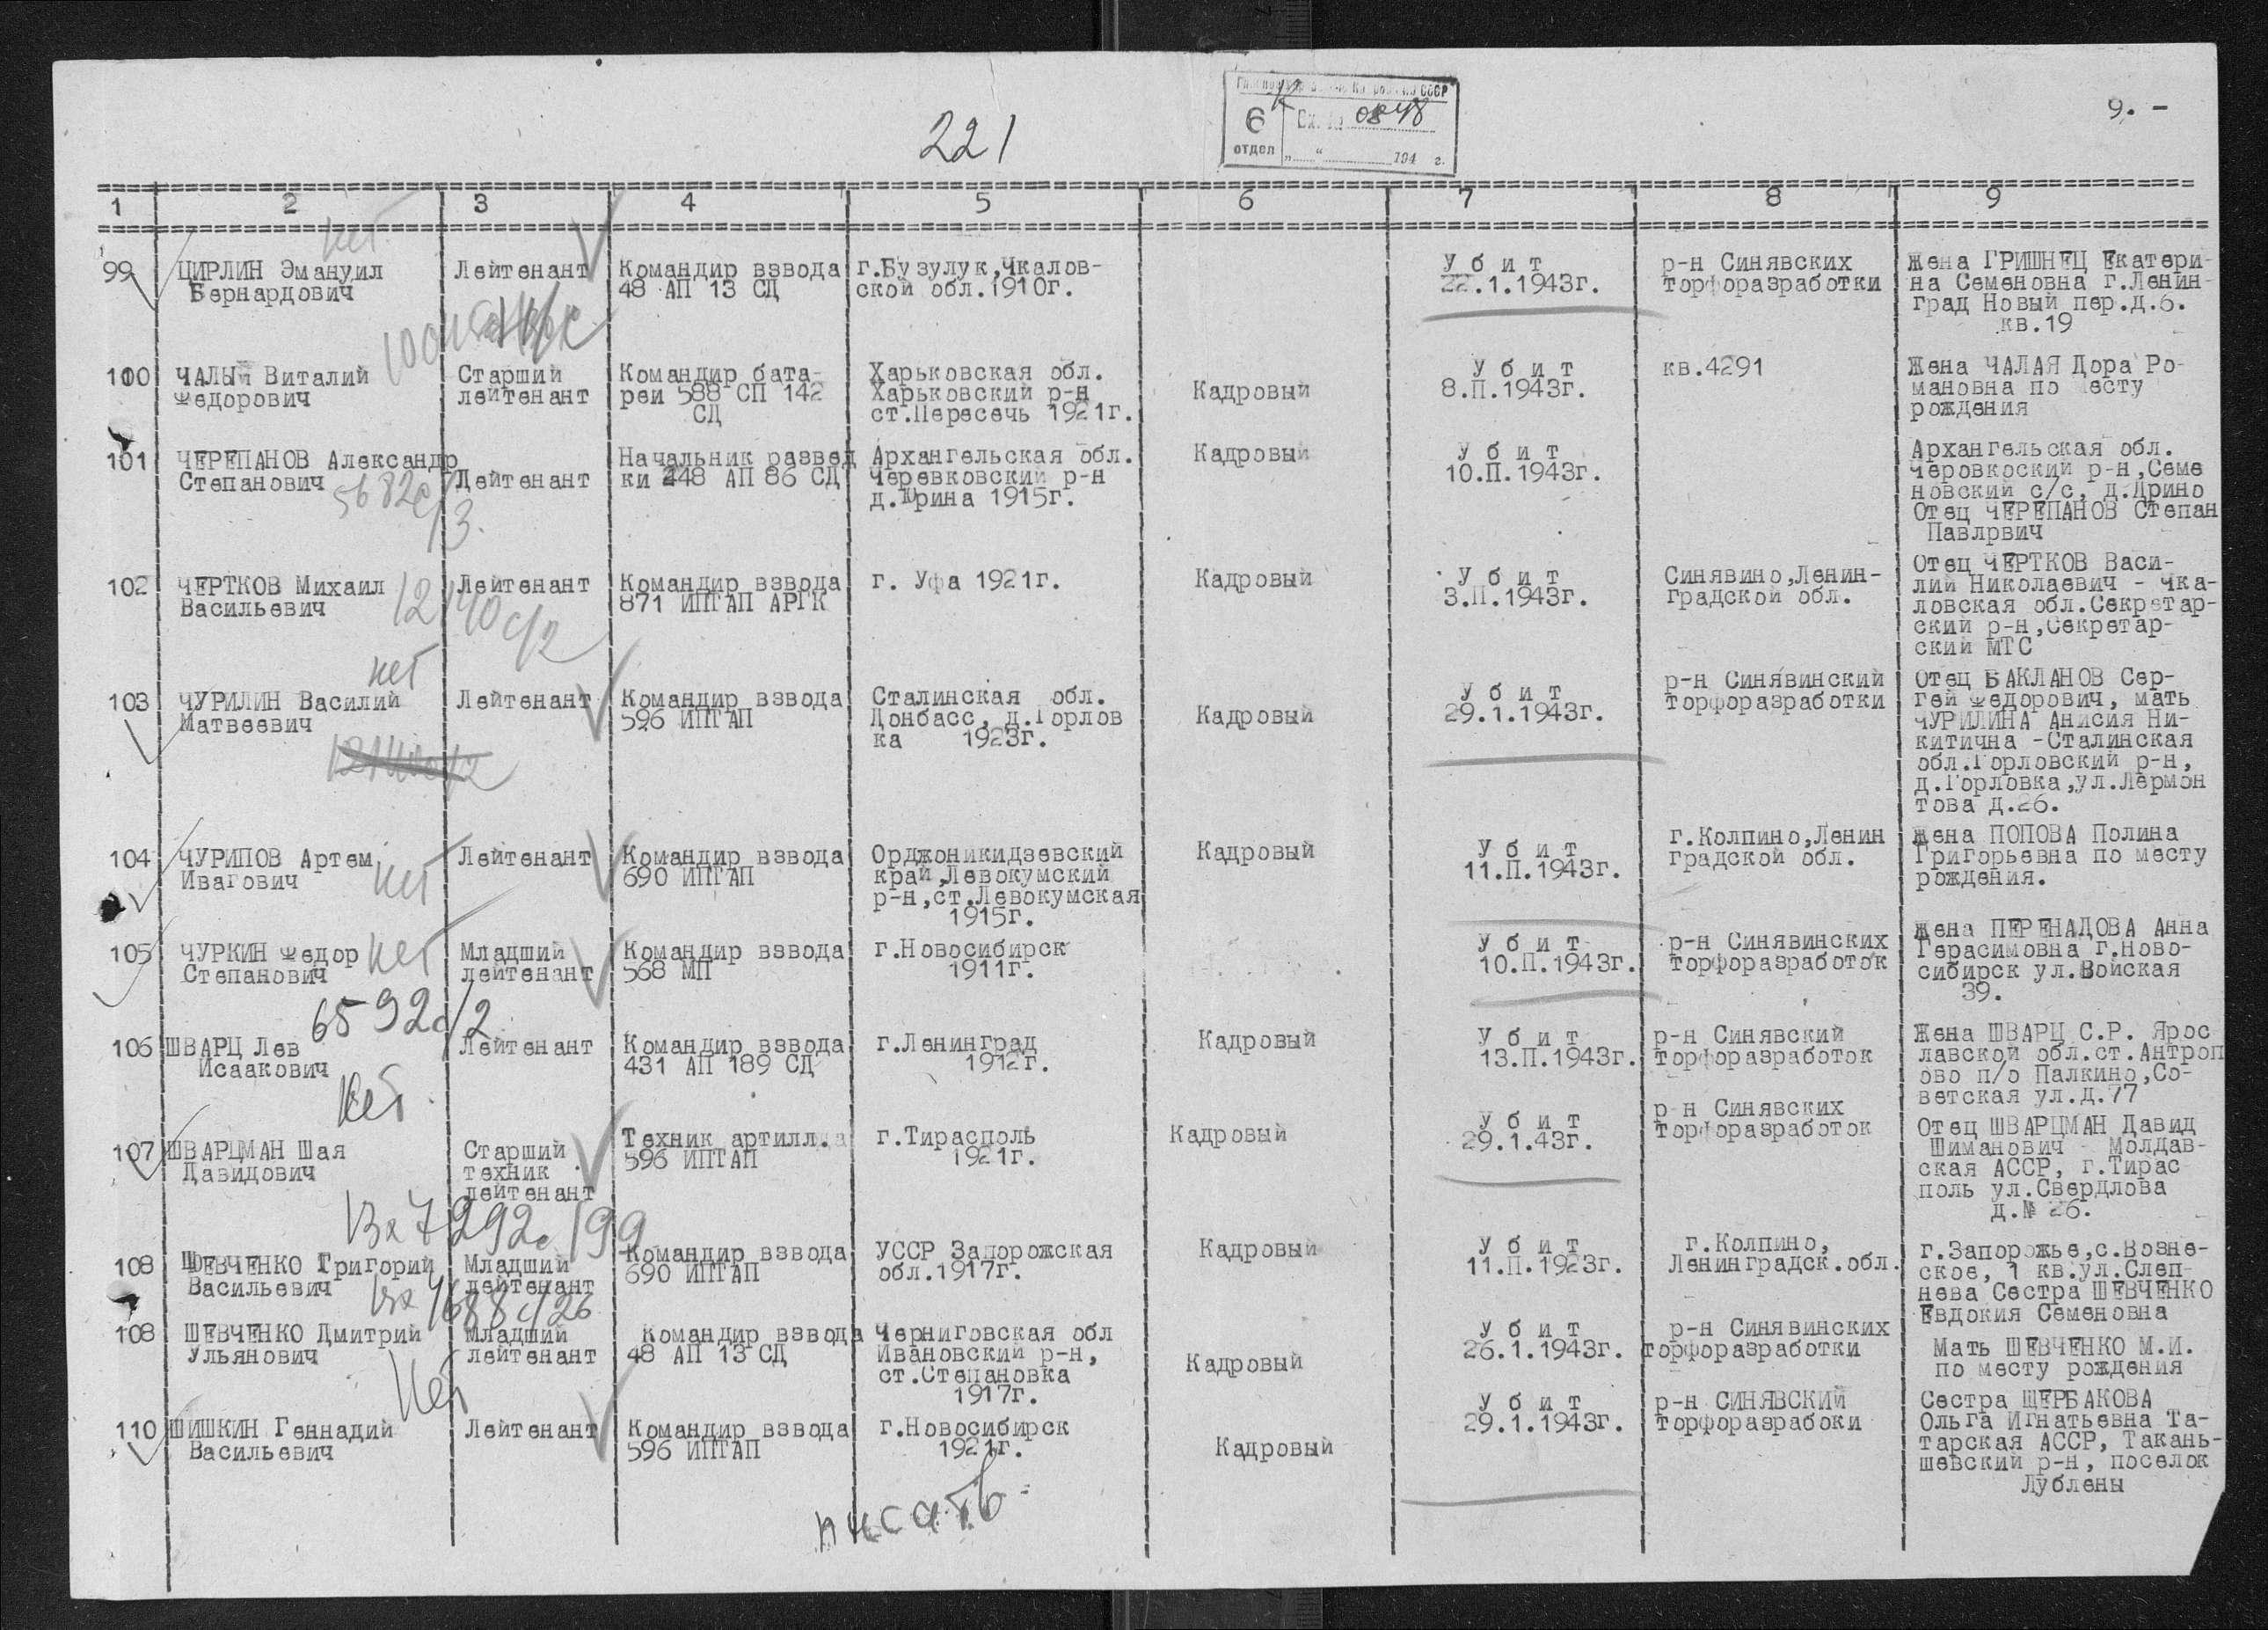 9. -
221
6
отдел
Вх. № 0848
194 г.
1 2 3 4 5 6 7 8 9
нет
99 ЦИРЛИН Эмануил Лейтенант Командир взвода г.Бузулук,Чкалов- У б и т р-н Синявских Жена ГРИШНЕЦ Екатери-
Бернардович 48 АП 13 СД ской обл.1910г. 22.1.1943г. торфоразработки на Семеновна г.Ленин-
град Новый пер.д.6.
кв.19
100 ЧАЛЫЙ Виталий Старший Командир бата- Харьковская обл. У б и т кв.4291 Жена ЧАЛАЯ Дора Ро-
Федорович лейтенант реи 588 СП 142 Харьковский р-н Кадровый 8.П.1943г. мановна по месту
СД ст.Пересечь 1921г. рождения
101 ЧЕРЕПАНОВ Александр Начальник развед Архангельская обл. Кадровый У б и т Архангельская обл.
Степанович Лейтенант ки 248 АП 86 СД Черевковский р-н 10.П.1943г. Черовкоский р-н,Семе
5682с/3. д.Юрина 1915г. новский с/с, д.Дрино
Отец ЧЕРЕПАНОВ Степан
Павлрвич
102 ЧЕРТКОВ Михаил Лейтенант Командир взвода г. Уфа 1921г. Кадровый У б и т Синявино,Ленин- Отец ЧЕРТКОВ Васи-
Васильевич 871 ИПТАП АРГК 3.П.1943г. градской обл. лий Николаевич - Чка-
12140с/2 ловская обл.Секретар-
ский р-н,Секретар-
ский МТС
нет
103 ЧУРИЛИН Василий Лейтенант Командир взвода Сталинская обл. Кадровый У б и т р-н Синявинский Отец БАКЛАНОВ Сер-
Матвеевич 596 ИПТАП Донбасс, д.Горлов 29.1.1943г. торфоразработки гей Федорович, мать
ка 1923г. ЧУРИЛИНА Анисия Ни-
китична -Сталинская
обл.Горловский р-н,
д.Горловка,ул.Лермон
това д.26.
104 ЧУРИПОВ Артем Лейтенант Командир взвода Орджоникидзевский Кадровый У б и т г.Колпино,Ленин Жена ПОПОВА Полина
Ивагович нет 690 ИПТАП край,Левокумский 11.П.1943г. градской обл. Григорьевна по месту
р-н,ст.Левокумская рождения.
1915г.
105 ЧУРКИН Федор нет Младший Командир взвода г.Новосибирск У б и т р-н Синявинских Жена ПЕРЕНАДОВА Анна
Степанович лейтенант 568 МП 1911г. 10.П.1943г. торфоразработок Герасимовна г.Ново-
сибирск ул.Войская
39.
6592с/2
106 ШВАРЦ Лев Лейтенант Командир взвода г.Ленинград Кадровый У б и т р-н Синявский Жена ШВАРЦ С.Р. Ярос
Исаакович 431 АП 189 СД 1912г. 13.П.1943г. торфоразработок лавской обл.ст.Антроп
ово п/о Палкино,Со-
ветская ул.д.77
нет
107 ШВАРЦМАН Шая Старший Техник артилл. г.Тирасполь Кадровый У б и т р-н Синявских Отец ШВАРЦМАН Давид
Давидович техник 596 ИПТАП 1921г. 29.1.43г. торфоразработок Шиманович - Молдав-
лейтенант ская АССР, г.Тирас
поль ул.Свердлова
д.№ 26.
Вх 7292с/99
108 ШЕВЧЕНКО Григорий Младший Командир взвода УССР Запорожская Кадровый У б и т г.Колпино, г.Запорожье,с.Возне-
Васильевич лейтенант 690 ИПТАП обл.1917г. 11.П.1923г. Ленинградск.обл. ское, 1 кв.ул.Слеп-
нева Сестра ШЕВЧЕНКО
Евдокия Семеновна
Вх 4688с/26
108 ШЕВЧЕНКО Дмитрий Младший Командир взвода Черниговская обл Кадровый У б и т р-н Синявинских Мать ШЕВЧЕНКО М.И.
Ульянович лейтенант 48 АП 13 СД Ивановский р-н, 26.1.1943г. торфоразработки по месту рождения
ст.Степановка
1917г.
нет
110 ШИШКИН Геннадий Лейтенант Командир взвода г.Новосибирск Кадровый У б и т р-н СИНЯВСКИЙ Сестра ЩЕРБАКОВА
Васильевич 596 ИПТАП 1921г. 29.1.1943г. торфоразрабоки Ольга Игнатьевна Та-
тарская АССР, Такань-
шевский р-н, поселок
Лублены
писать